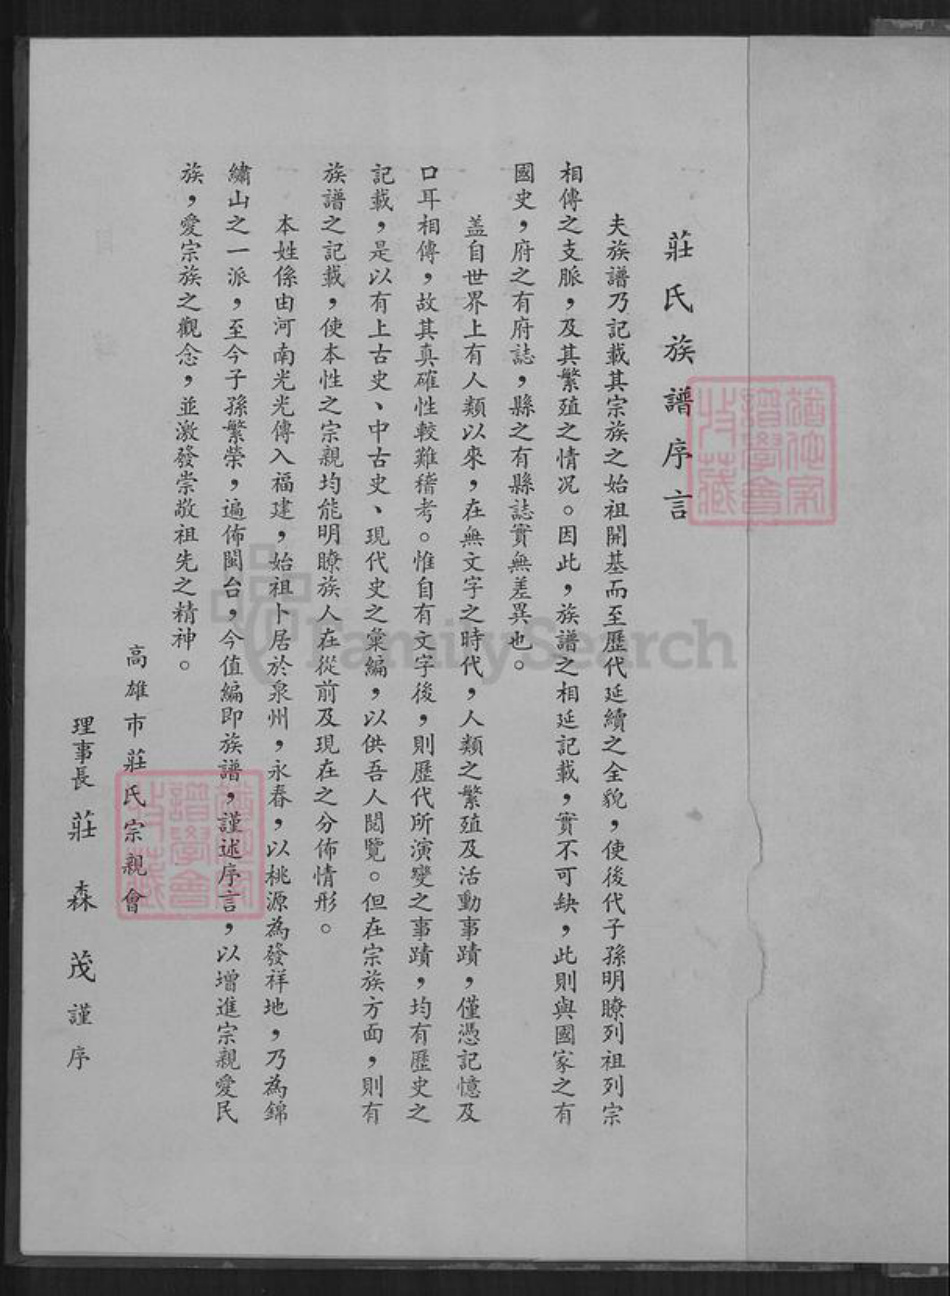 莊氏族譜序言
夫族譜乃記載其宗族之始祖開基而至歷代延續之全貌，使後代子孫明瞭列祖列宗
相傳之支脈，及其繁殖之情況。因此，族譜之相延記載，實不可缺，此則與國家之有
國史，府之有府誌，縣之有縣誌實無差異也。
蓋自世界上有人類以來，在無文字之時代，人類之繁殖及活動事蹟，僅憑記憶及
口耳相傳，故其真確性較難稽考。惟自有文字後，則歷代所演變之事蹟，均有歷史之
記載，是以有上古史、中古史、現代史之彙編，以供吾人閱覽。但在宗族方面，則有
族譜之記載，使本性之宗親均能明瞭族人在從前及現在之分佈情形。
本姓係由河南光光傳入福建，始祖卜居於泉州，永春，以桃源為發祥地，乃為錦
繡山之一派，至今子孫繁榮，遍佈閩台，今值編即族譜，謹述序言，以增進宗親愛民
族，愛宗族之觀念，並激發崇敬祖先之精神。
高雄市莊氏宗親會
理事長莊森茂謹序
FamilySearch
譜學會
收藏
譜學會
收藏